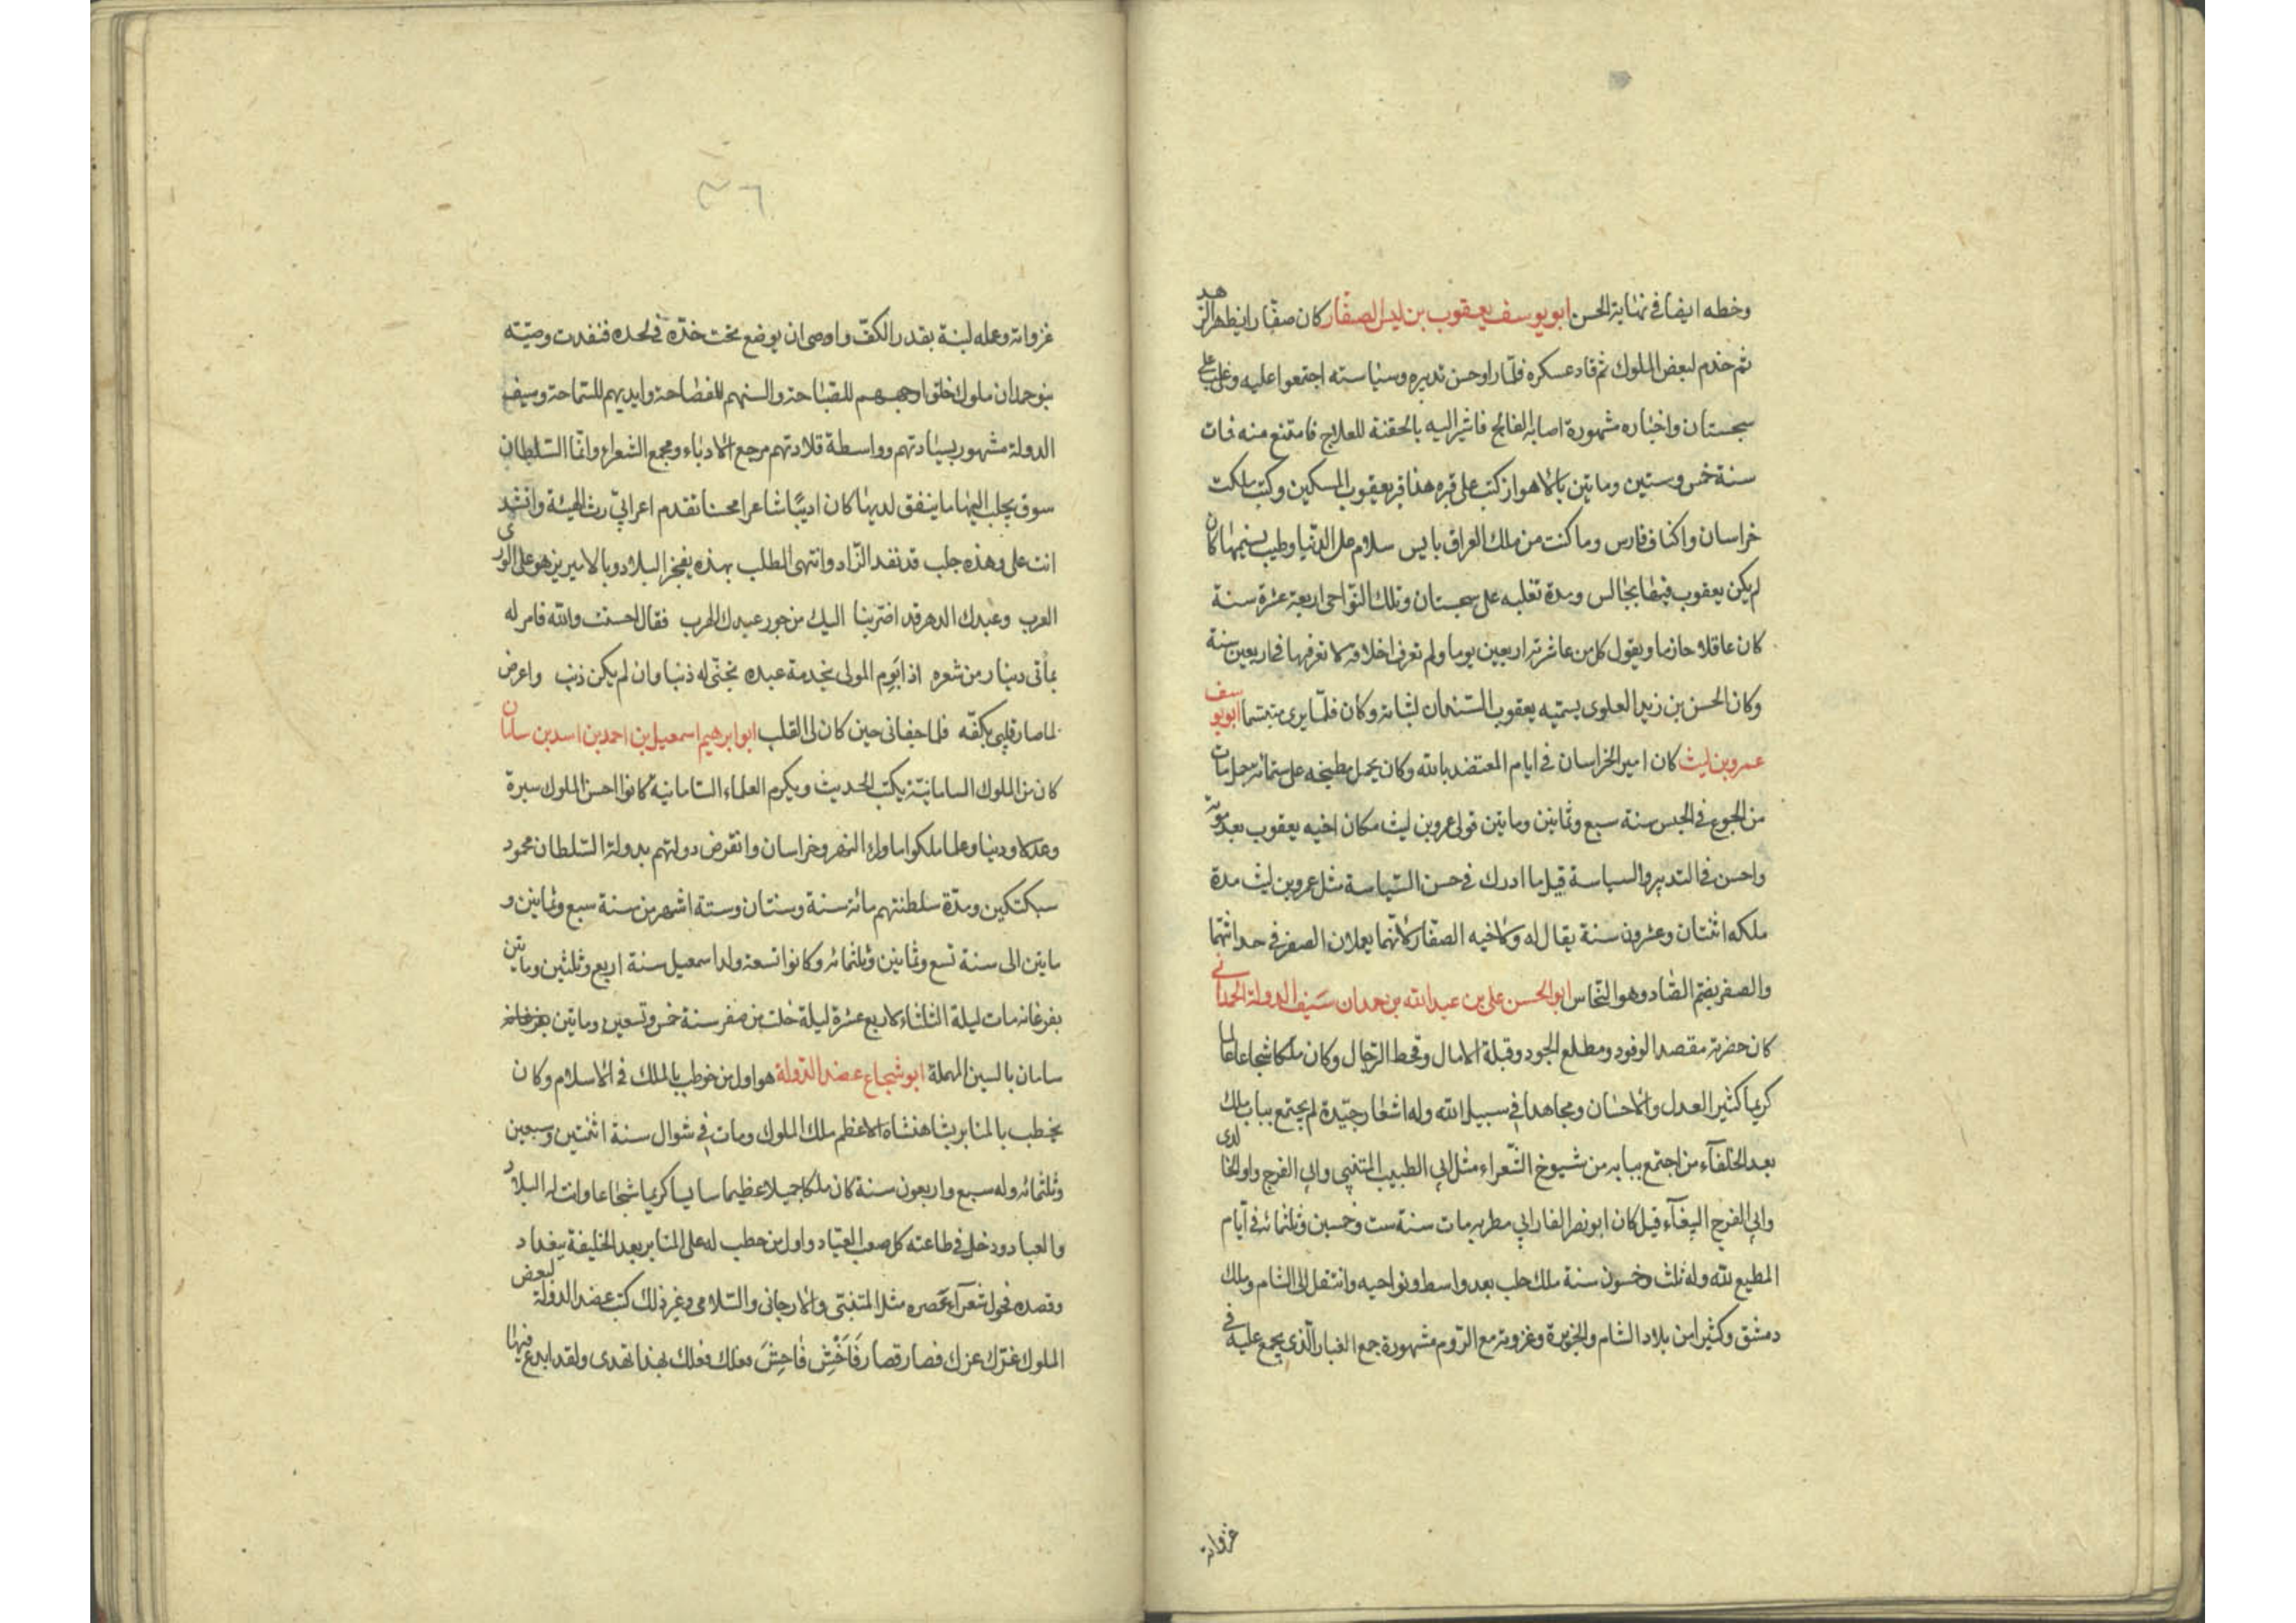 وخطه ايضا في نهاية الحسن ابو يوسف يعقوب بن ليث الصفار كان صفارا يظهر الزهد
ثم خدم لبعض الملوك ثم قاد عسكره فلما راو حسن تدبيره وسياسته اجتمعوا عليه وغلب على
سجستان واخباره مشهورة اصابه الفالج فاشير اليه بالحقنة للعلاج فامتنع منه فمات
سنة خمس وستين وماتين بالاهواز كتب على قبره هذا قبر يعقوب المسكين وكتب ملكت
خراسان واكناف فارس وما كنت من ملك العراق بايس سلام على الدنيا وطيب نسيمها كان
لم يكن يعقوب فيها بجالس ومدة تغلبه على سجستان وتلك النواحي اربعة عشرة سنة
كان عاقلا حازما ويقول كل من عاشرته اربعين يوما ولم تعرف اخلاقه لا تعرفها في اربعين سنة
وكان الحسن بن زيد العلوي يسميه يعقوب السندان لثباته وكان فلما يرى متبسما ابو يوسف
عمرو بن ليث كان امير الخراسان في ايام المعتضد بالله وكان يحمل مطبخه على ستمائة جمل مات
من الجوع في الحبس سنة سبع وثمانين وماتين تولى عمرو بن ليث مكان اخيه يعقوب بعد موته
واحسن في التدبير والسياسة قيل ما ادرك في حسن السياسة مثل عمرو بن ليث مدة
ملكه اثنتان وعشرون سنة يقال له ولاخيه الصفار لانهما يعملان الصفر في حداثتهما
والصفر بضم الصاد وهو النحاس ابو الحسن علي بن عبد الله بن حمدان سيف الدولة الحمداني
كان حضرته مقصد الوفود ومطلع الجود وقبلة الامال ومحط الرحال وكان ملكا شجاعا عالما
كريما كثير العدل والاحسان ومجاهدا في سبيل الله وله اشعار جيدة لم يجتمع بباب ملك
بعد الخلفاء من اجتمع ببابه من شيوخ الشعراء مثل ابي الطيب المتنبي وابي الفرج واو الخالدي
وابي الفرج الببغاء قيل كان ابو نصر الفارابي مطربه مات سنة ست وخمسين وثلثمائة في ايام
المطيع لله وله ثلث وخمسون سنة ملك حلب بعد واسط ونواحيه وانتقل الى الشام وملك
دمشق وكثيرا من بلاد الشام والجزيرة وغزوته مع الروم مشهورة جمع الغبار الذي يجمع عليه في
غزواته
٣٦
غزواته وعمله لبنة بقدر الكف واوصى ان يوضع تحت خده في لحده فنفدت وصيته
بنو حمدان ملوك خلق اوجههم للصباحة والسنهم للفصاحة وايديهم للسماحة وسيف
الدولة مشهور بسيادتهم وواسطة قلادتهم مرجع الادباء ومجمع الشعراء وانما السلطان
سوق يجلب اليها ما ينفق لديها كان اديبا شاعرا محسنا تقدم اعرابي رث الهيئة وانشد
انت علي وهذه حلب قد نفد الزاد وانتهى الطلب بهذه يفخر البلاد وبالامير يزهو على الورى
العرب وعبدك الدهر قد اضر بنا اليك من جور عبدك الهرب فقال احسنت والله فامر له
بمأتى دينار من شعره اذا ابرم المولى بخدمة عبده تجنى له ذنبا وان لم يكن ذنب واعرض
لما صار قلبي بكفه فلما جفاني حين كان لي القلب ابو ابرهيم اسمعيل بن احمد بن اسد بن سامان
كان من الملوك السامانية يكتب الحديث ويكرم العلماء السامانية كانوا احسن الملوك سيرة
وعدلا ودينا وعلما ملكوا ما وراء النهر وخراسان وانقرض دولتهم بدولة السلطان محمود
سبكتكين ومدة سلطنتهم مائة سنة وسنتان وستة اشهر من سنة سبع وثمانين و
ماتين الى سنة تسع وثمانين وثلثمائة وكانوا تسعة ولد اسمعيل سنة اربع وثلثين وماتين
بفرغانه مات ليلة الثلثاء لاربع عشرة ليلة خلت من صفر سنة خمس وتسعين وماتين بفرغانه
سامان بالسين المهملة ابو شجاع عضد الدولة هو اول من خوطب بالملك في الاسلام وكان
يخطب بالمنابر بشاهنشاه الاعظم ملك الملوك ومات في شوال سنة اثنتين وسبعين
وثلثمائة وله سبع واربعون سنة كان ملكا جميلا عظيما سايسا كريما شجاعا وانت له البلاد
والعباد ودخل في طاعته كل صعب القياد واول من خطب له على المنابر بعد الخليفة ببغداد
وقصده فحول شعراء عصره مثل المتنبي والارجاني والسلامي وغير ذلك كتب عضد الدولة لبعض
الملوك غرك عزك فصار قصار فاخش فاحش فعلك فعلك بهذا تهدى ولقد ابدع فيها